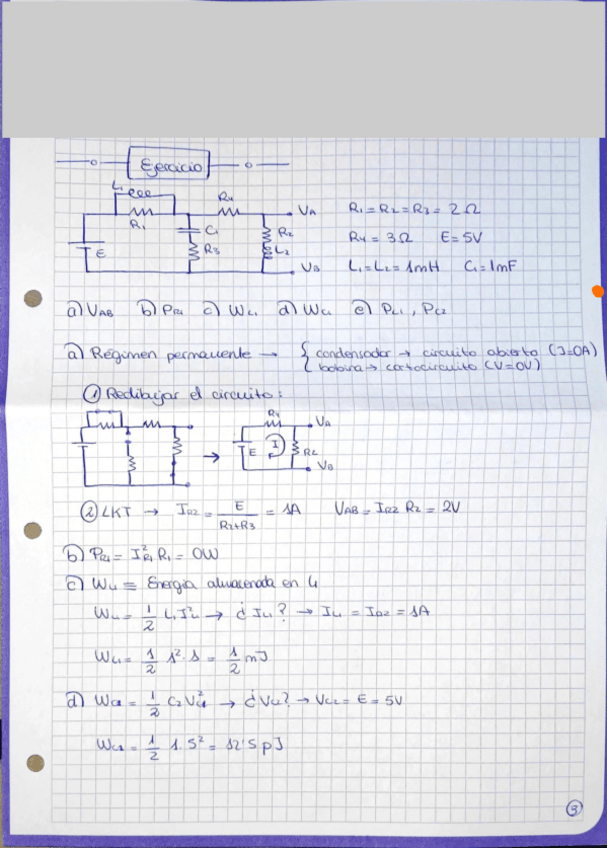 Ejercicio
L₁
R₄
R₁
VA
C₁
R₂
E
R₃
L₂
VB
R₁ = R₂ = R₃ = 2Ω
R₄ = 3Ω E = 5V
L₁ = L₂ = 1mH C₁ = 1mF
a) VAB b) PR1 c) WL1 d) WC1 e) PL1, PC2
a) Régimen permanente → { condensador → circuito abierto (I=0A)
bobina → cortocircuito (V=0V)
① Redibujar el circuito:
R₄
VA
E
I
R₂
VB
② LKT → IR2 = E / R2+R3 = 1A VAB = IR2 R2 = 2V
b) PR1 = I²R1 R1 = 0W
c) WL1 ≡ Energía almacenada en L1
WL1 = 1/2 L1 I²L1 → ¿IL1? → IL1 = IR2 = 1A
WL1 = 1/2 1²·1 = 1/2 mJ
d) WC1 = 1/2 C2 V²C1 → ¿VC1? → VC2 = E = 5V
WC1 = 1/2 1·5² = 12'5 pJ
3